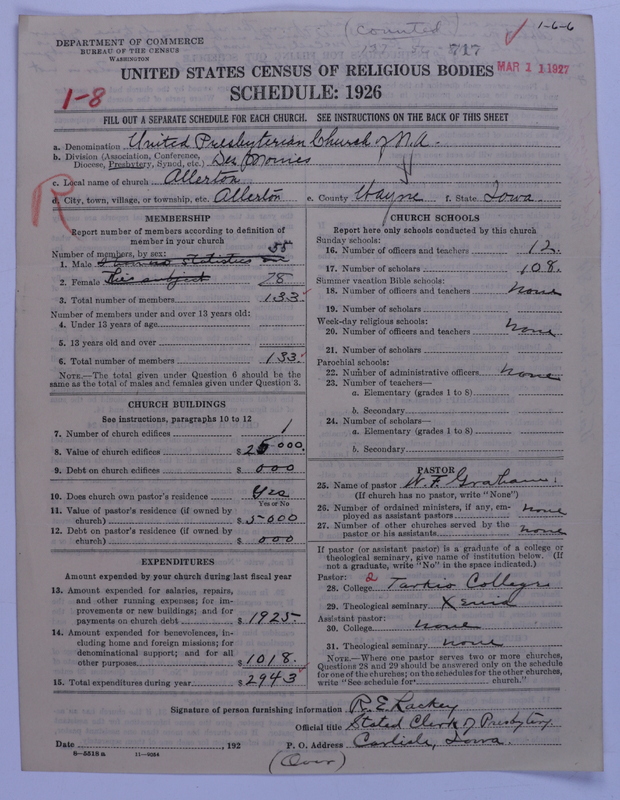 (Counted)
137 56 717
1-6-6
DEPARTMENT OF COMMERCE
BUREAU OF THE CENSUS
WASHINGTON
UNITED STATES CENSUS OF RELIGIOUS BODIES
MAR 11 1927
SCHEDULE: 1926
1-8
FILL OUT A SEPARATE SCHEDULE FOR EACH CHURCH. SEE INSTRUCTIONS ON THE BACK OF THIS SHEET
a. Denomination United Presbyterian Church of N.A.
b. Division (Association, Conference, Diocese, Presbytery, Synod, etc.) Des Moines
c. Local name of church Allerton
R
d. City, town, village, or township, etc. Allerton e. County Wayne f. State Iowa.
MEMBERSHIP
Report number of members according to definition of
member in your church
Number of members, by sex:
1. Male 55
2. Female this subject 78
3. Total number of members 133
Number of members under and over 13 years old:
4. Under 13 years of age
5. 13 years old and over
6. Total number of members 133
NOTE.—The total given under Question 6 should be the
same as the total of males and females given under Question 3.
CHURCH BUILDINGS
See instructions, paragraphs 10 to 12
7. Number of church edifices 1
8. Value of church edifices $ 25000.
9. Debt on church edifices $ 000
10. Does church own pastor's residence Yes
Yes or No
11. Value of pastor's residence (if owned by
church) $ 5000
12. Debt on pastor's residence (if owned by
church) $ 000
EXPENDITURES
Amount expended by your church during last fiscal year
13. Amount expended for salaries, repairs,
and other running expenses; for im-
provements or new buildings; and for
payments on church debt $ 1925.
14. Amount expended for benevolences, in-
cluding home and foreign missions; for
denominational support; and for all
other purposes $ 1018.
15. Total expenditures during year $ 2943
CHURCH SCHOOLS
Report here only schools conducted by this church
Sunday schools:
16. Number of officers and teachers 12.
17. Number of scholars 108.
Summer vacation Bible schools:
18. Number of officers and teachers none
19. Number of scholars
Week-day religious schools:
20. Number of officers and teachers none
21. Number of scholars
Parochial schools:
22. Number of administrative officers none
23. Number of teachers—
a. Elementary (grades 1 to 8)
b. Secondary
24. Number of scholars—
a. Elementary (grades 1 to 8)
b. Secondary
PASTOR
25. Name of pastor W. F. Graham.
(If church has no pastor, write "None")
26. Number of ordained ministers, if any, em-
ployed as assistant pastors none
27. Number of other churches served by the
pastor or his assistants none
If pastor (or assistant pastor) is a graduate of a college or
theological seminary, give name of institution below. (If
not a graduate, write "No" in the space indicated.)
Pastor:
28. College 2 Tarkio College
29. Theological seminary Xenia
Assistant pastor:
30. College none
31. Theological seminary none
NOTE.—Where one pastor serves two or more churches,
Questions 28 and 29 should be answered only on the schedule
for one of the churches; on the schedules for the other churches,
write "See schedule for church."
Signature of person furnishing information R. E. Lackey
Official title Stated Clerk of Presbytery.
Date , 192 P. O. Address Carlisle, Iowa.
8—5518 a 11—9034
(Over)